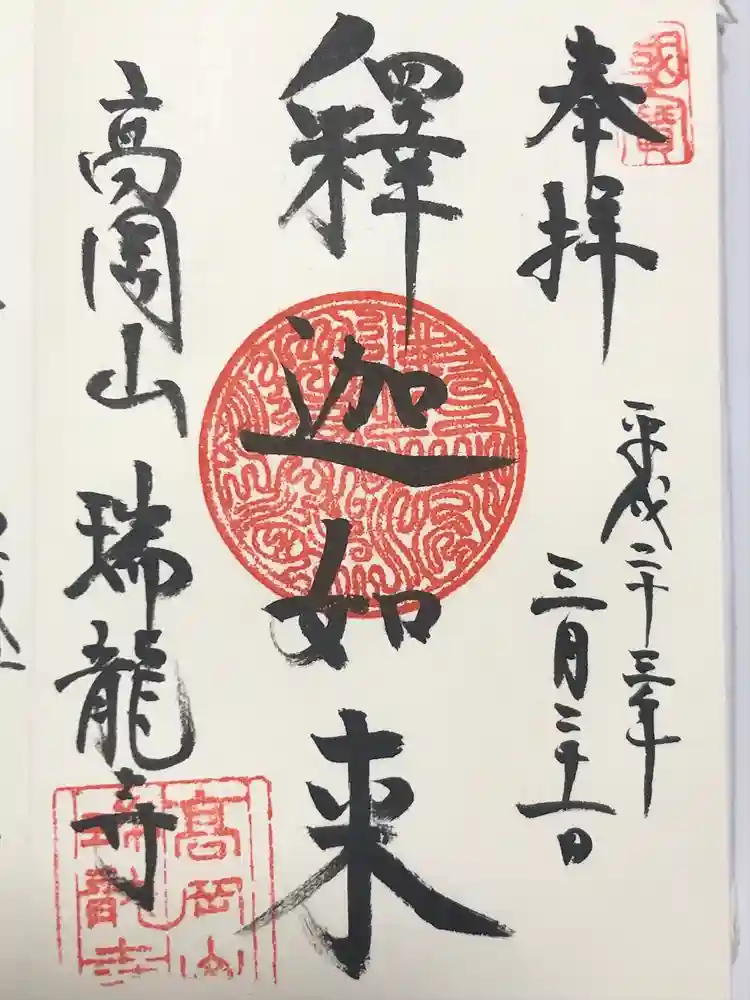 奉拝
平成二十三年
三月二十一日
釋迦如来
高岡山瑞龍寺
國寶
高岡山
瑞龍寺